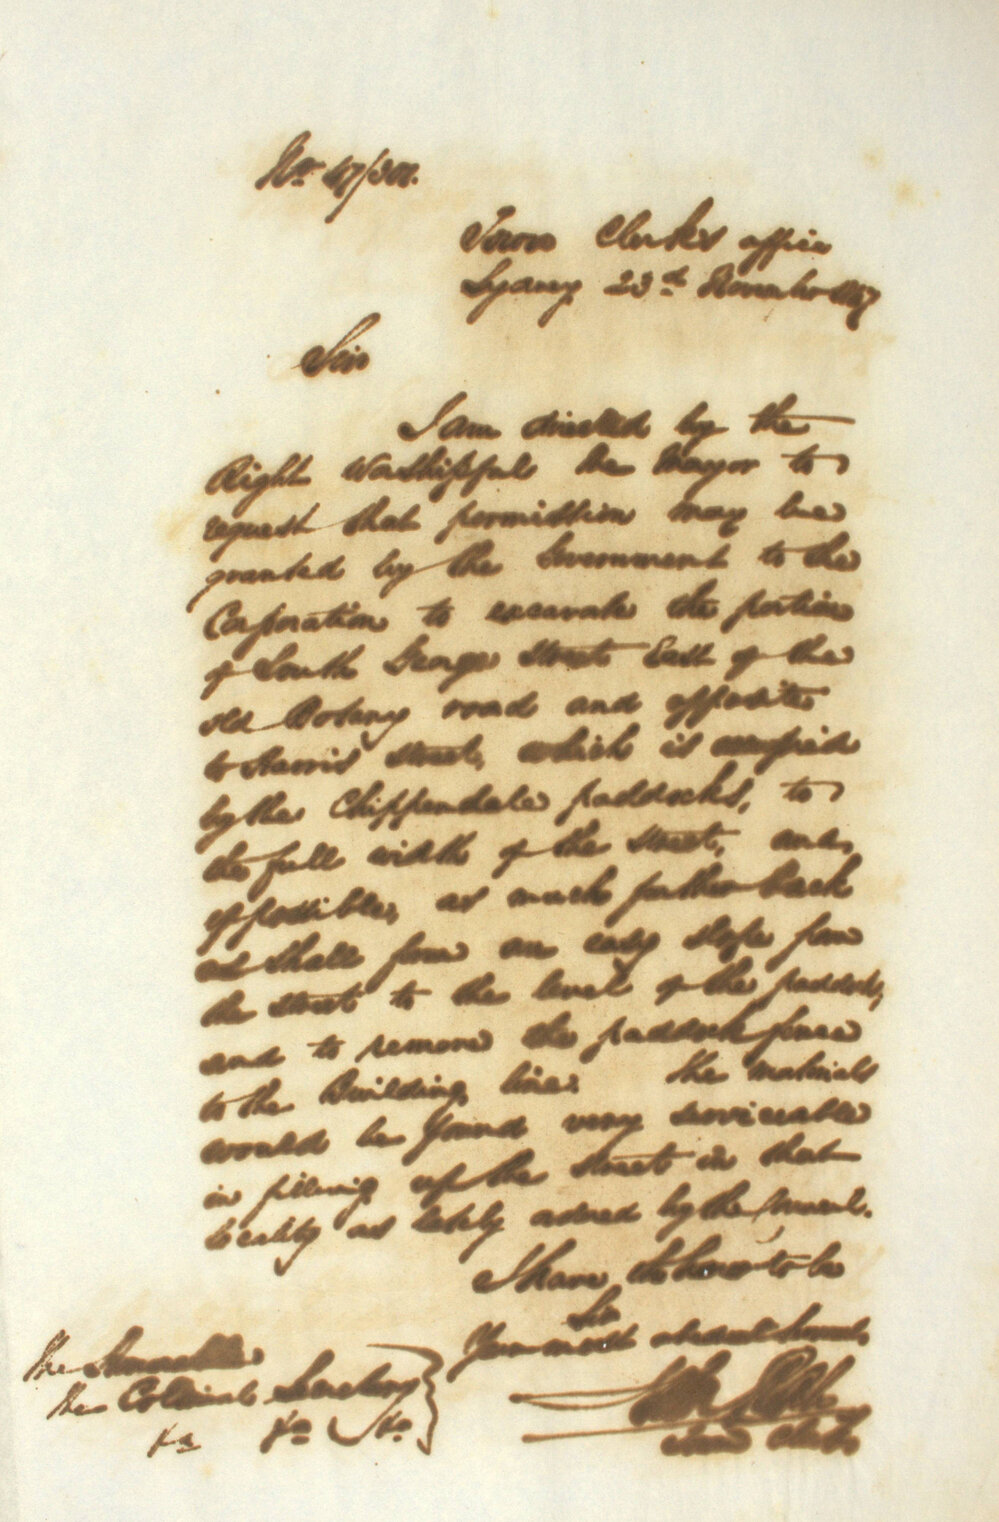 No. 47/301.
Town Clerk's office
Sydney 23rd November 1847
Sir
I am directed by the
Right Worshipful the Mayor to
request that permission may be
granted by the Government to the
Corporation to excavate the portion
of South George Street East of the
old Botany road and opposite
to Harris Street, which is occupied
by the Chippendale paddocks, to
the full width of the Street, and,
if possible, as much further back
as shall form an easy slope from
the street to the level of the paddock,
and to remove the paddock fence
to the Building line. The materials
would be found very serviceable
in filling up the Street in that
locality as lately asked by the Council.
I have the honor to be
Sir
Your most obedient Servant
Town Clerk
The Honorable
the Colonial Secretary
&c &c &c